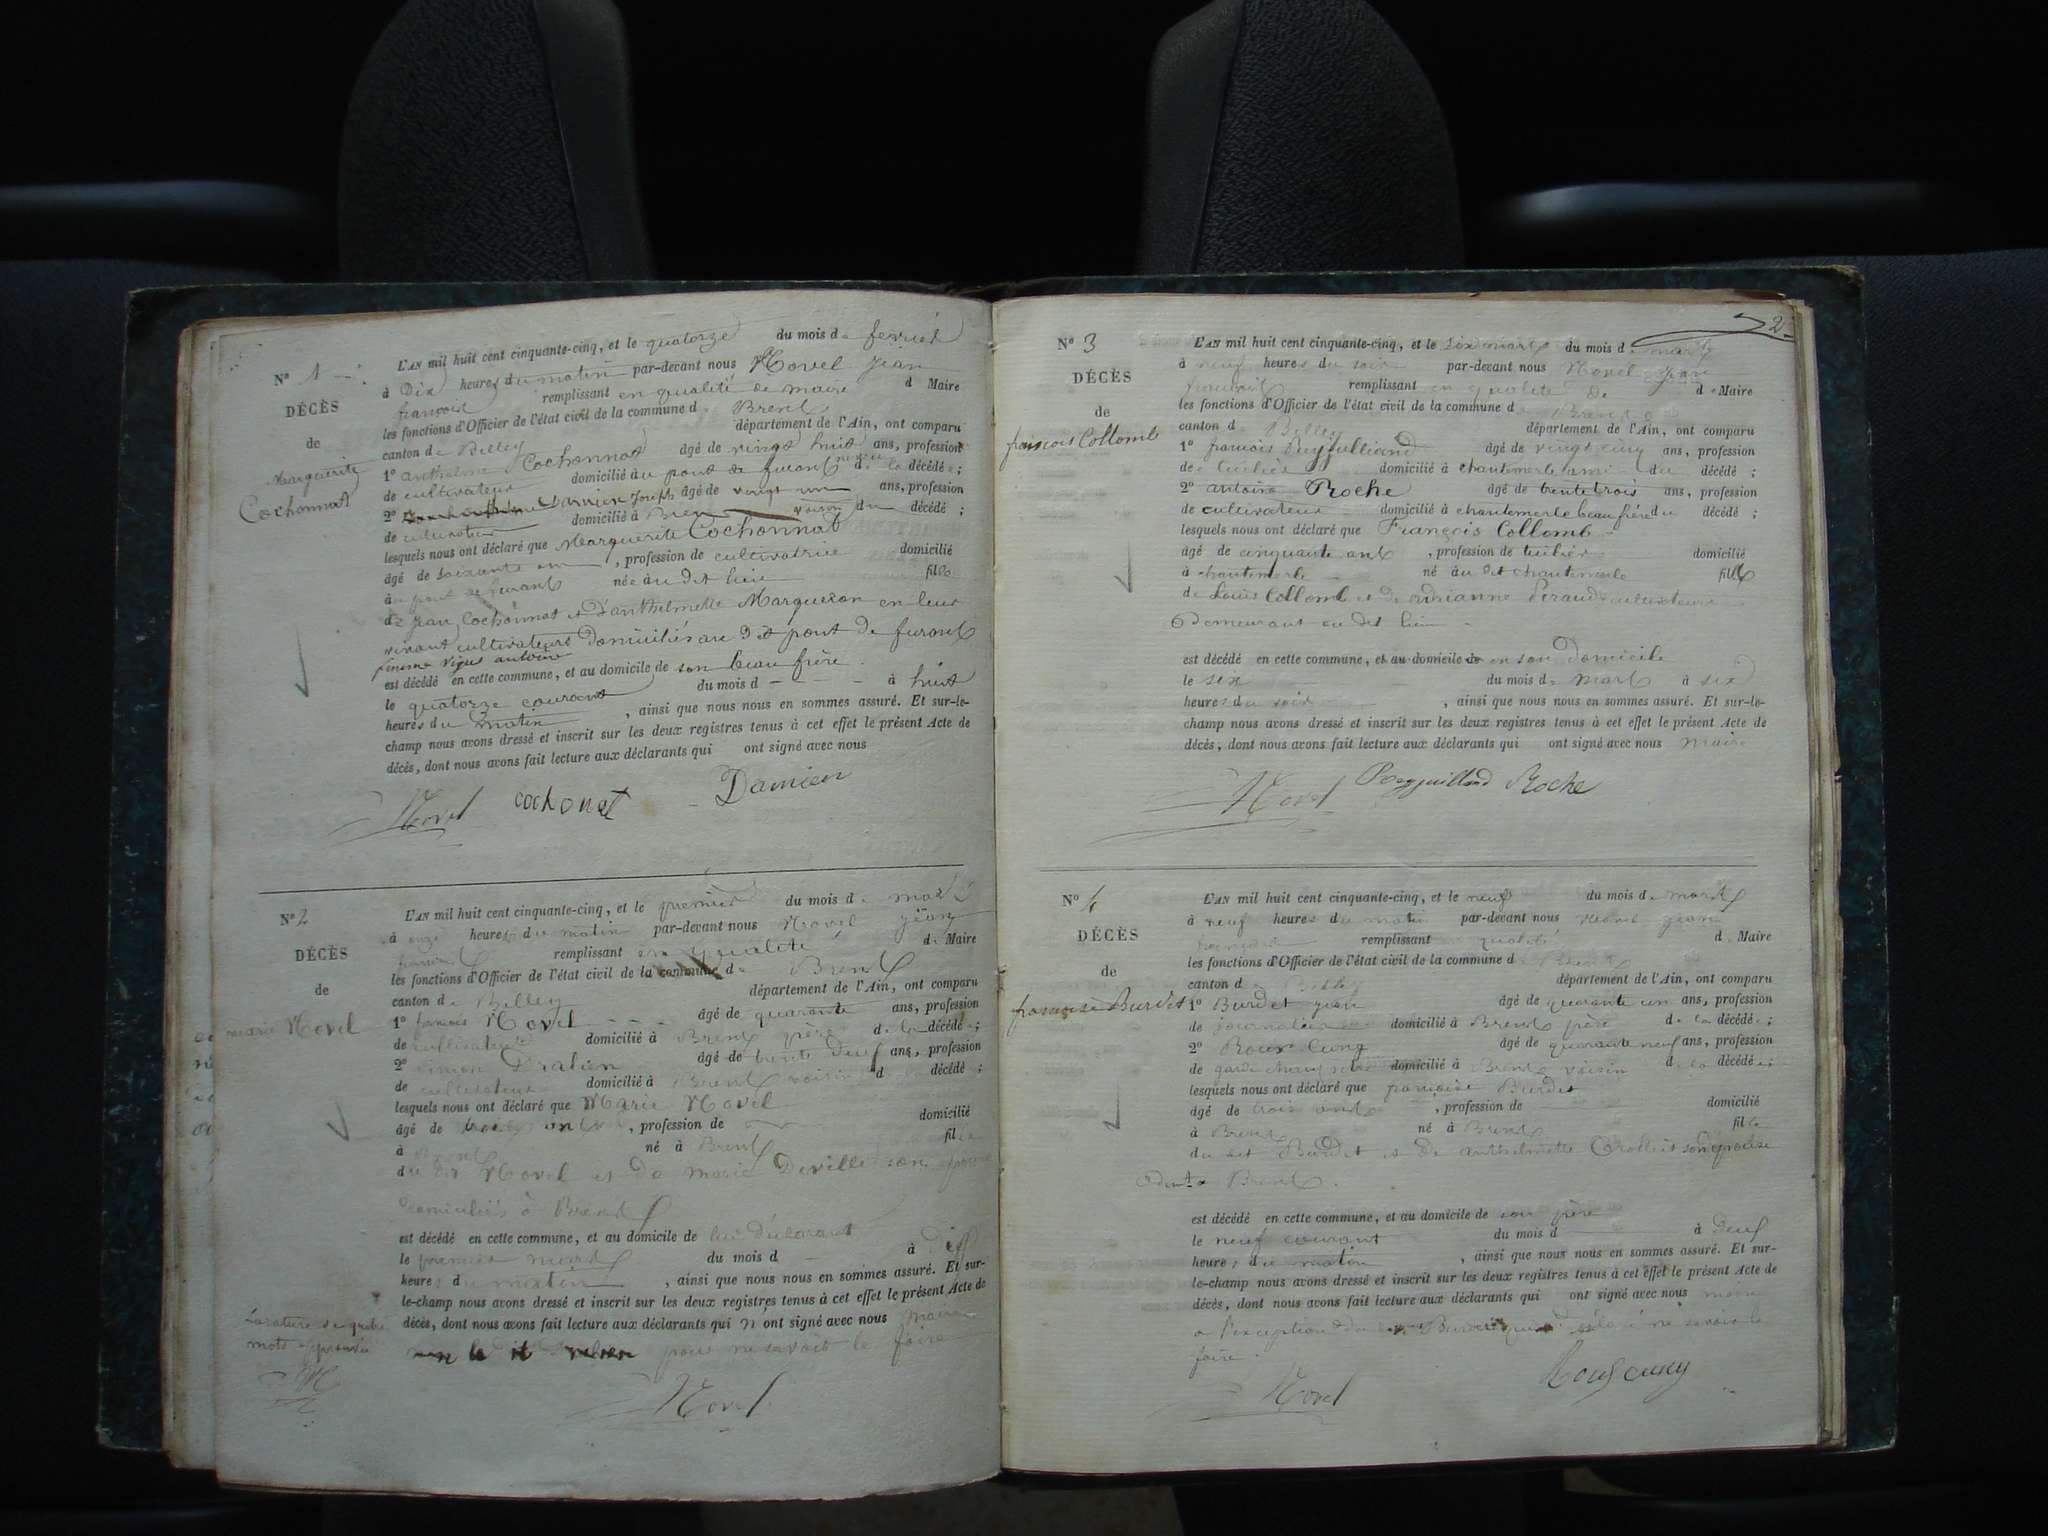 N° 1
DÉCÈS
de
Marguerite
Cochonnat
L'AN mil huit cent cinquante-cinq, et le quatorze du mois de fevrier
à Dix heures du matin par-devant nous Hovel jean
françois remplissant en qualité de maire d Maire
les fonctions d'Officier de l'état civil de la commune d Brens
canton de Belley département de l'Ain, ont comparu
1° anthelme Cochonnat âgé de vingt huit ans, profession
de cultivateur domicilié au pont de furans neveu de la décédée ;
2° Damien Joseph âgé de vingt un ans, profession
de cultivateur domicilié à Bren voisin du décédé ;
lesquels nous ont déclaré que Marguerite Cochonnat
âgé de soixante un , profession de cultivatrice domicilié
au pont de furans née au dit lieu fille
de jean Cochonnat et d'anthelmette Marqueron en leur
vivant cultivateurs Domiciliés au dit pont de furans
femme antoine
est décédé en cette commune, et au domicile de son beau frère
le quatorze courant du mois d à huit
heures du matin , ainsi que nous nous en sommes assuré. Et sur-le-
champ nous avons dressé et inscrit sur les deux registres tenus à cet effet le présent Acte de
décès, dont nous avons fait lecture aux déclarants qui ont signé avec nous
Hovel cochonat Damien
N° 2
DÉCÈS
de
marie Hovel
L'AN mil huit cent cinquante-cinq, et le premier du mois de mars
à onze heures du matin par-devant nous Hovel jean
françois remplissant en qualité de Maire
les fonctions d'Officier de l'état civil de la commune de Brens
canton de Belley département de l'Ain, ont comparu
1° francois Hovel âgé de quarante ans, profession
de cultivateur domicilié à Brens père de la décédée ;
2° simon Dralien âgé de trente deux ans, profession
de cultivateur domicilié à Brens voisin d décédé ;
lesquels nous ont déclaré que Marie Hovel
âgé de trois ans , profession de domicilié
à Brens né à Brens fille
du dit Hovel et de marie Deville son épouse
domiciliés à Brens
est décédé en cette commune, et au domicile de déclarant
le premier mars du mois d à Dix
heures du matin , ainsi que nous nous en sommes assuré. Et sur-
le-champ nous avons dressé et inscrit sur les deux registres tenus à cet effet le présent Acte de
décès, dont nous avons fait lecture aux déclarants qui n ont signé avec nous maire
pour ne savoir le faire
La rature de quatre
mots approuvée
Hovel
N° 3
DÉCÈS
de
françois Collomb
2
L'AN mil huit cent cinquante-cinq, et le six mars du mois de mars
à neuf heures du soir par-devant nous Hovel jean
francois remplissant en qualité de d Maire
les fonctions d'Officier de l'état civil de la commune d Brens
canton d Belley département de l'Ain, ont comparu
1° francois Peyjulliand âgé de vingt cinq ans, profession
de tuilier domicilié à chantemerle ami du décédé ;
2° antoine Roche âgé de trente trois ans, profession
de cultivateur domicilié à chantemerle beau frère du décédé ;
lesquels nous ont déclaré que François Collomb
âgé de cinquante ans , profession de tuilier domicilié
à chantemerle né au dit chantemerle fils
de Louis Collomb et de Adrianne Peraud cultivateurs
Demeurant au dit lieu
est décédé en cette commune, et au domicile de en son domicile
le six du mois de mars à six
heures du soir , ainsi que nous nous en sommes assuré. Et sur-le-
champ nous avons dressé et inscrit sur les deux registres tenus à cet effet le présent Acte de
décès, dont nous avons fait lecture aux déclarants qui ont signé avec nous maire
Hovel Peyjuilland Roche
N° 4
DÉCÈS
de
françoise Burdet
L'AN mil huit cent cinquante-cinq, et le neuf du mois de mars
à neuf heures du matin par-devant nous Hovel jean
francois remplissant qualité de Maire
les fonctions d'Officier de l'état civil de la commune d Brens
canton d Belley département de l'Ain, ont comparu
1° Burdet jean âgé de quarante un ans, profession
de journalier domicilié à Brens père de la décédée ;
2° Roux Cuny âgé de quarante neuf ans, profession
de garde champetre domicilié à Brens voisin de la décédée ;
lesquels nous ont déclaré que françoise Burdet
âgé de trois ans , profession de domicilié
à Brens né à Brens fille
du dit Burdet et de anthelmette son épouse
à Brens
est décédé en cette commune, et au domicile de son père
le neuf courant du mois d à Deux
heures du matin , ainsi que nous nous en sommes assuré. Et sur-
le-champ nous avons dressé et inscrit sur les deux registres tenus à cet effet le présent Acte de
décès, dont nous avons fait lecture aux déclarants qui ont signé avec nous maire
a l'exception du Burdet qui a déclaré ne savoir le
faire
Hovel Roux Cuny